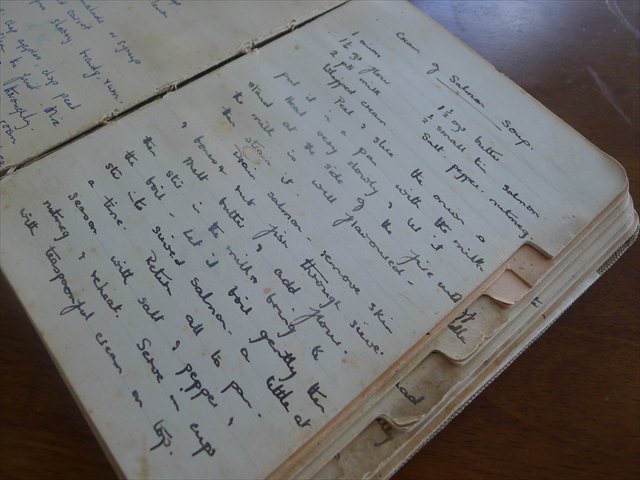 Cream of Salmon Soup.
1 onion 1½ ozs butter
1½ ozs flour ½ small tin salmon
2 pts milk Salt. pepper. nutmeg
Whipped cream.
Peel & slice the onion &
put it in a pan with the milk
Heat very slowly & let it
stand at the side of the fire until
the milk is well flavoured -
then strain it.
Drain salmon - remove skin
& bones & rub fish through sieve.
Melt butter & add flour.
then stir in the milk & bring to
the boil - Let it boil gently then
stir into sieved salmon a little at
a time. Return all to pan.
Season with salt & pepper &
nutmeg & reheat. Serve in cups
with teaspoonful cream on top.
chop apples chop peel
thoroughly.
brandy rum